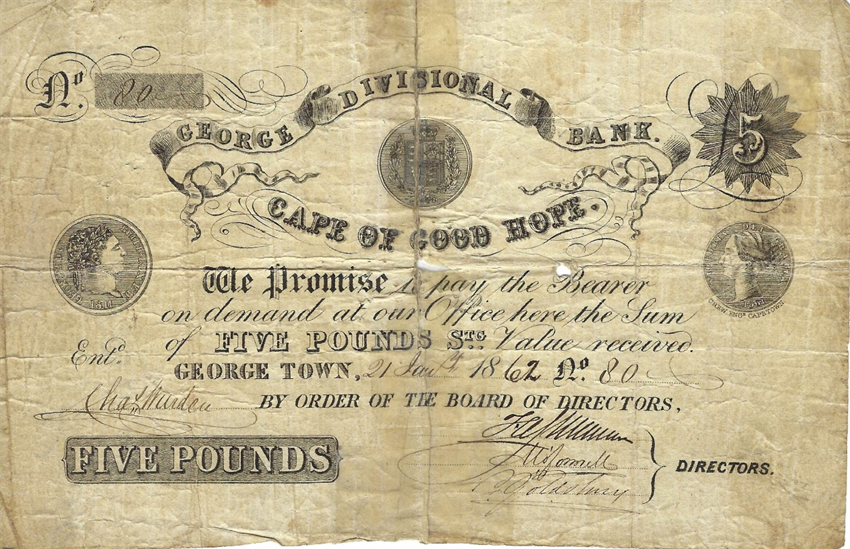 No. 80
GEORGE DIVISIONAL BANK.
5
CAPE OF GOOD HOPE.
We Promise to pay the Bearer
on demand at our Office here the Sum
of FIVE POUNDS STG. Value received.
Entd.
GEORGE TOWN, 21 Jany 1862 No. 80
BY ORDER OF THE BOARD OF DIRECTORS,
FIVE POUNDS
DIRECTORS.